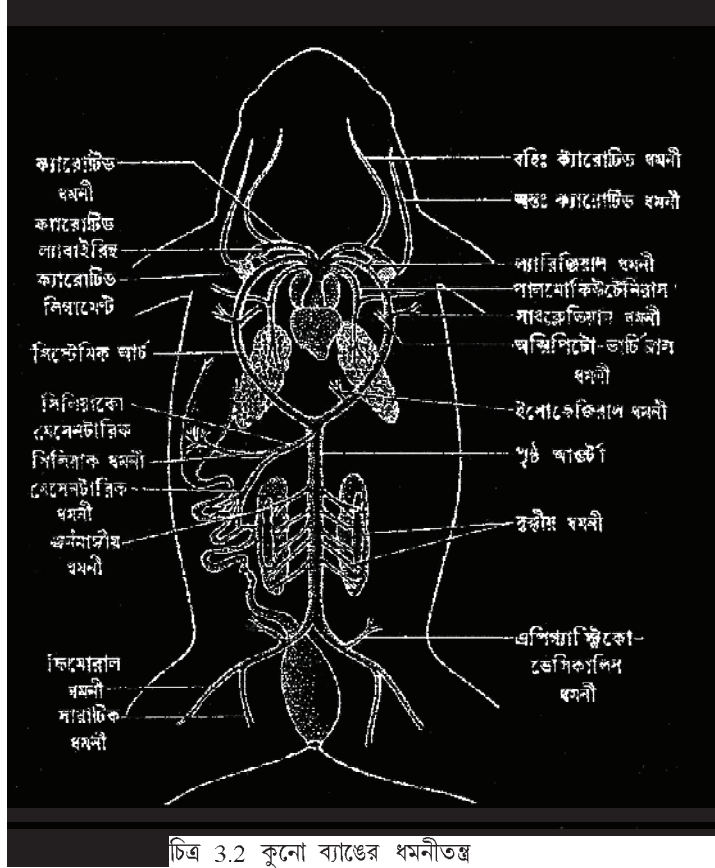 ক্যারোটিড
ধমনী
ক্যারোটিড
ল্যাবাইরিন্থ
ক্যারোটিড
লিগামেন্ট
সিস্টেমিক আর্চ
সিলিয়াকো
মেসেনটারিক
সিলিয়াক ধমনী
মেসেনটারিক
ধমনী
জননাঙ্গীয়
ধমনী
ফিমোরাল
ধমনী
সায়াটিক
ধমনী
বহিঃ ক্যারোটিড ধমনী
অন্তঃ ক্যারোটিড ধমনী
ল্যারিঞ্জিয়াল ধমনী
পালমোকিউটেনিয়াস
সাবক্লেভিয়ান ধমনী
অক্সিপিটো-ভার্টিব্রাল
ধমনী
ইসোফেজিয়াল ধমনী
পৃষ্ঠ আওর্টা
বৃক্কীয় ধমনী
এপিগ্যাস্ট্রিকো-
ভেসিকালিস
ধমনী
চিত্র 3.2 কুনো ব্যাঙের ধমনীতন্ত্র